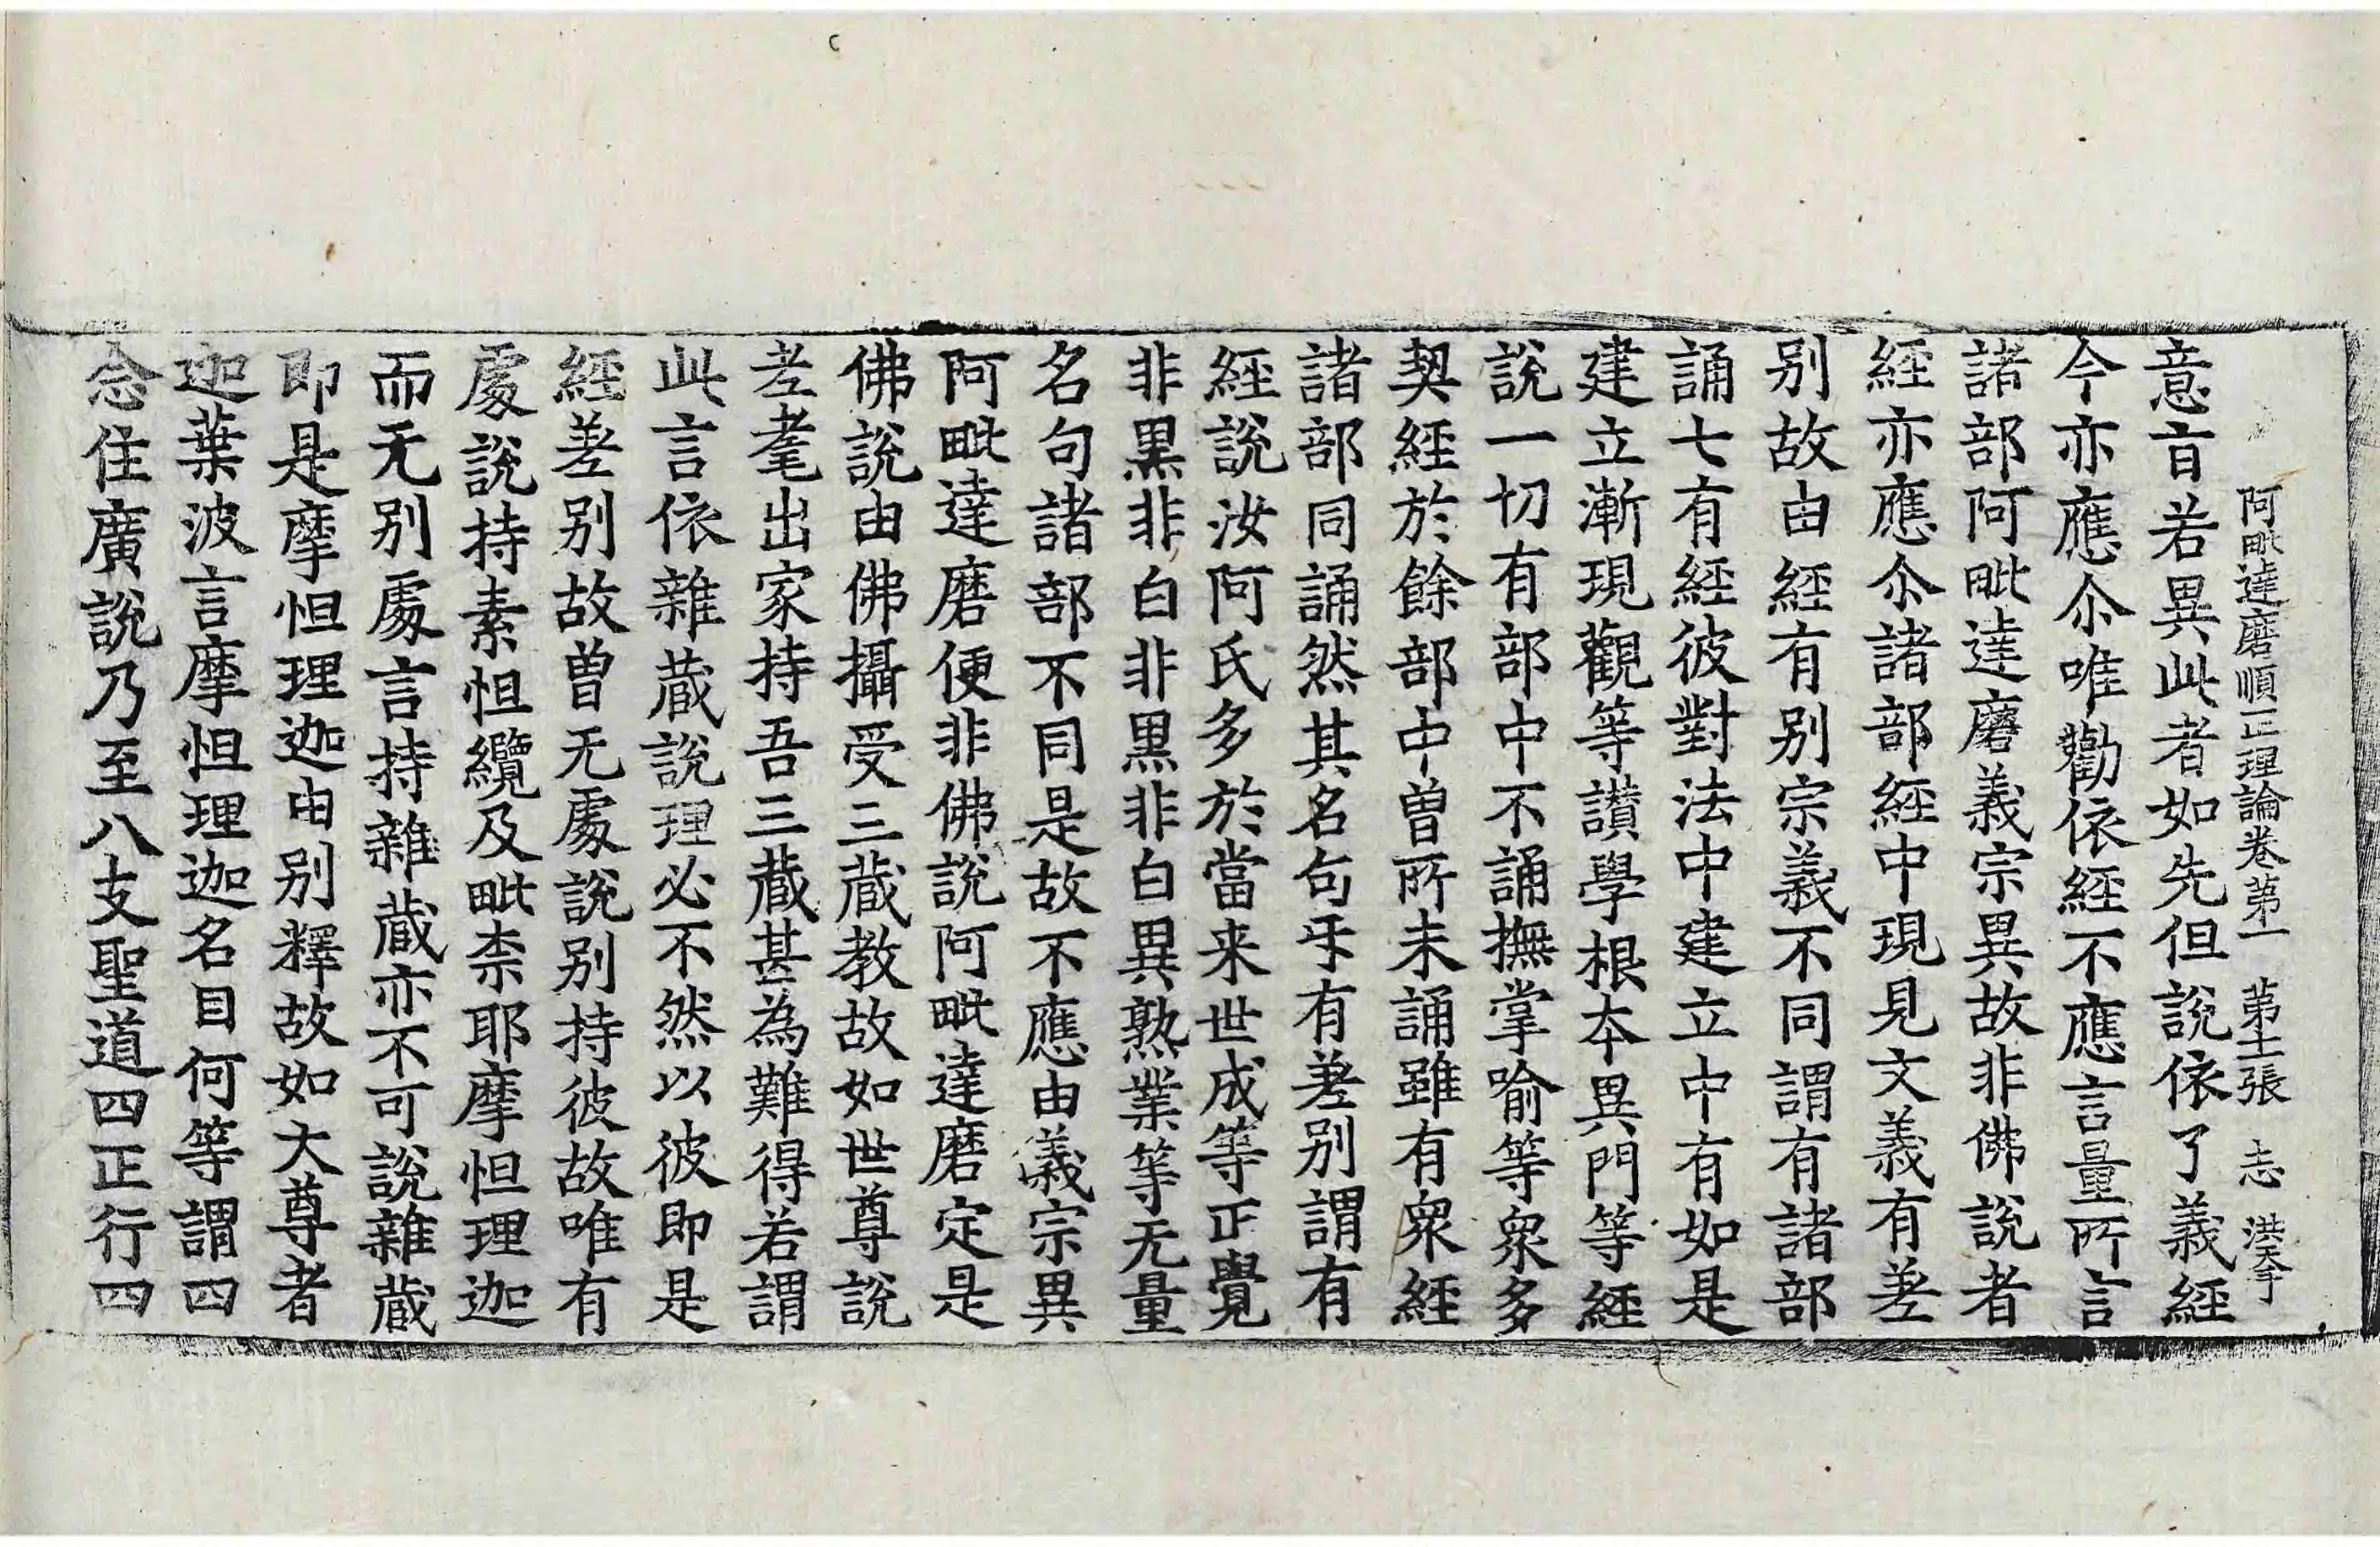 阿毗達磨順正理論卷第一 第十二張 志 洪奉
意旨若異此者如先但說依了義經
今亦應尒唯勸依經不應言量所言
諸部阿毗達磨義宗異故非佛說者
經亦應尒諸部經中現見文義有差
別故由經有別宗義不同謂有諸部
誦七有經彼對法中建立中有如是
建立漸現觀等讚學根本異門等經
說一切有部中不誦撫掌喻等衆多
契經於餘部中曾所未誦雖有衆經
諸部同誦然其名句㸦有差別謂有
經說汝阿氏多於當来世成等正覺
非黒非白非黒非白異熟業等无量
名句諸部不同是故不應由義宗異
阿毗達磨便非佛說阿毗達磨定是
佛說由佛攝受三藏教故如世尊說
差耄出家持吾三藏甚為難得若謂
此言依雜蔵說理必不然以彼即是
經差別故曾无處說別持彼故唯有
處說持素怛纜及毗柰耶摩怛理迦
而无別處言持雜蔵亦不可說雜蔵
即是摩怛理迦由別釋故如大尊者
迦葉波言摩怛理迦名目何等謂四
念住廣說乃至八支聖道四正行四